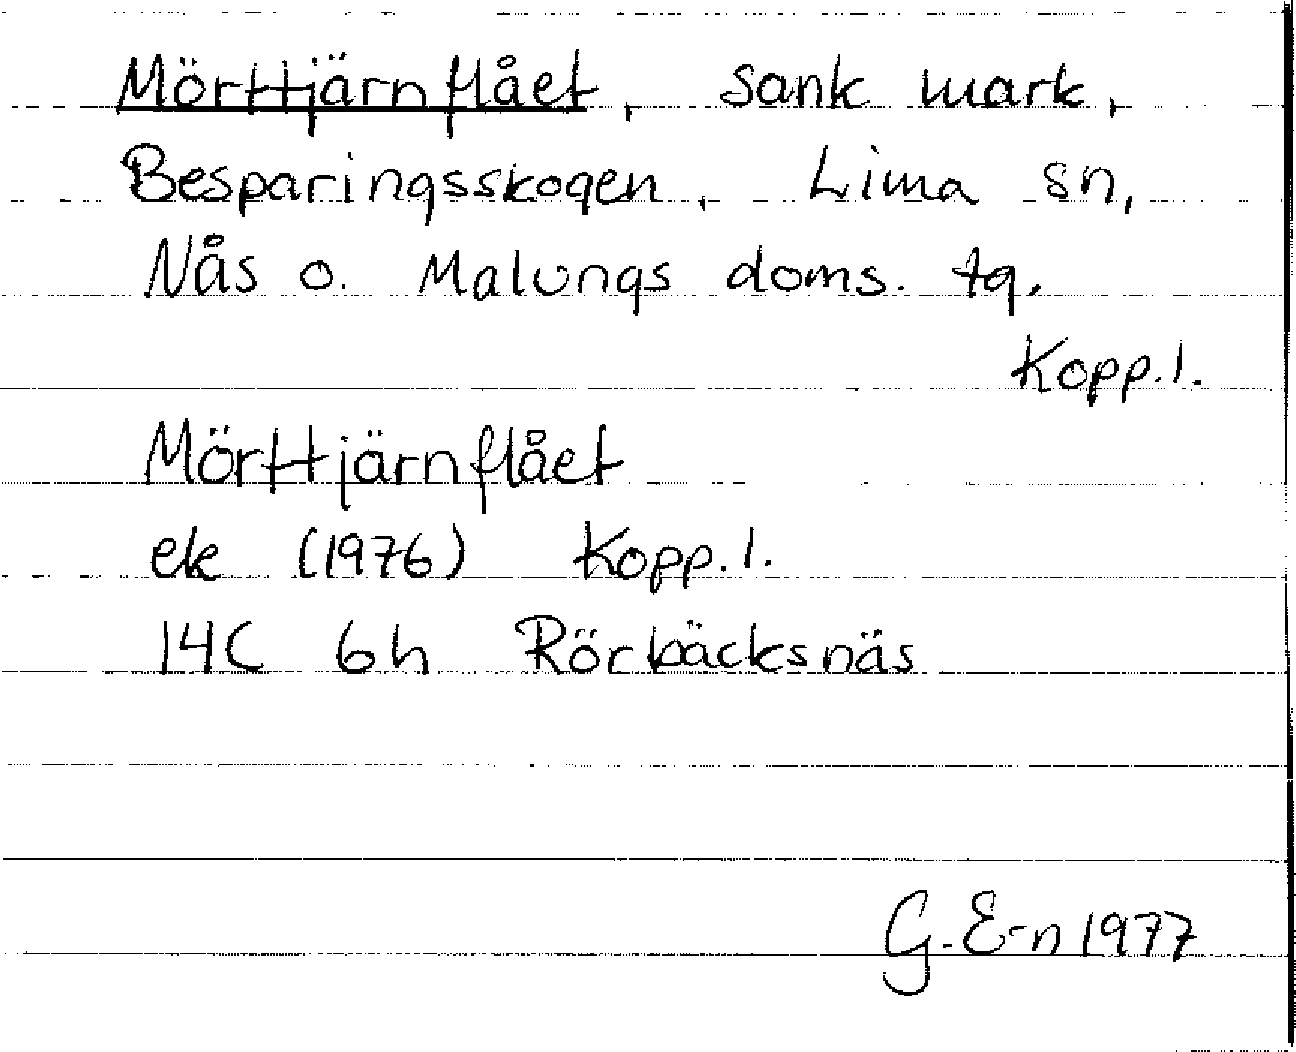 Mörttjärnflået, sank mark,
Besparingsskogen, Lima sn,
Nås o. Malungs doms. tg.
Kopp.l.
Mörttjärnflået
ek (1976) Kopp.l.
14C 6h Rörbäcksnäs
G.E-n 1977